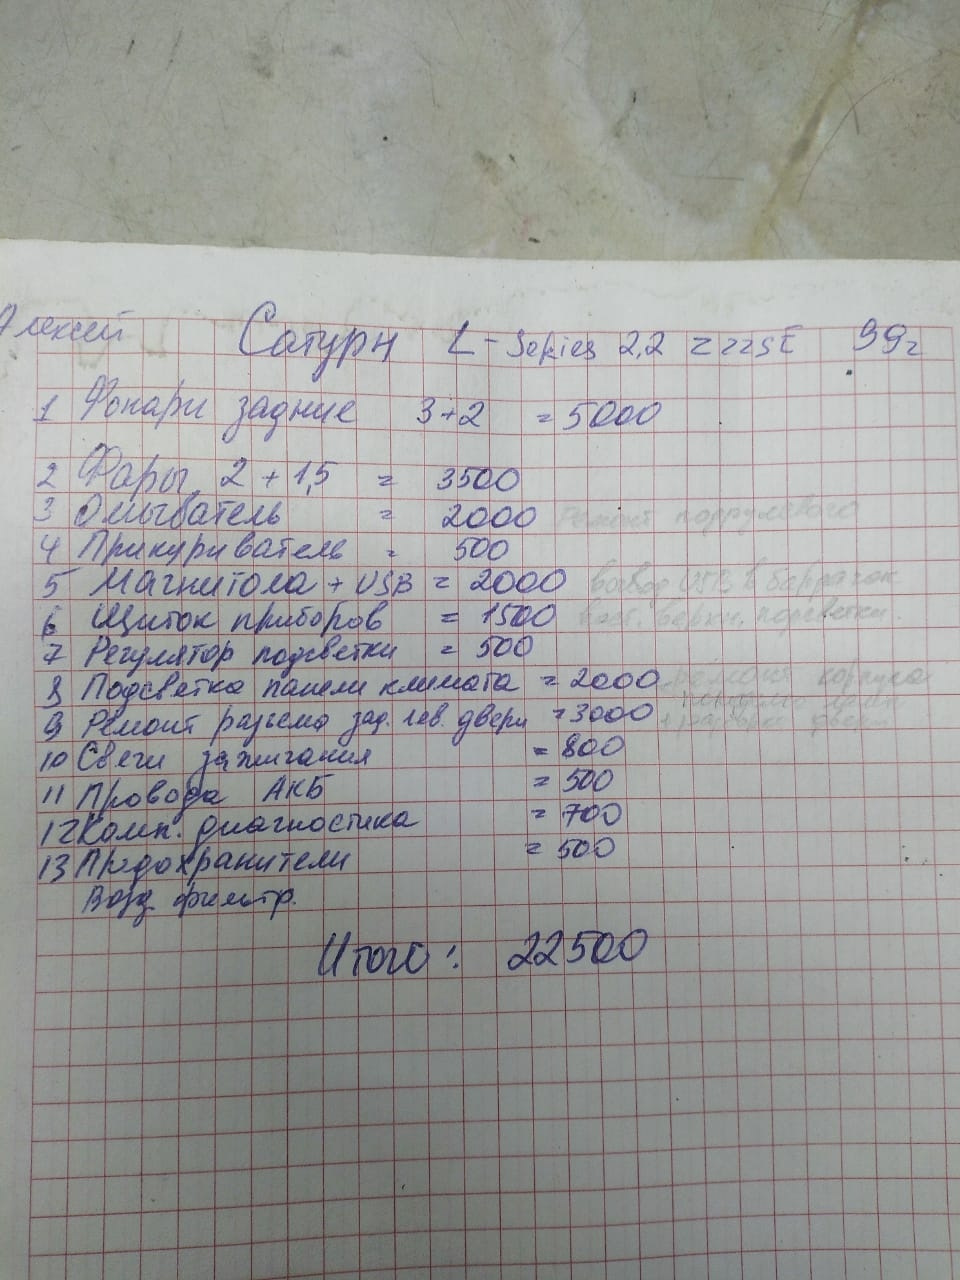 Алексей Сатурн L-Series 2,2 Z22SE 99г
1 Фонари задние 3+2 = 5000
2 Фары 2 + 1,5 = 3500
3 Омыватель = 2000 Ремонт подрулевого
4 Прикуриватель = 500
5 Магнитола + USB = 2000 вывод USB в бардачок
6 Щиток приборов = 1500 восст. верхн. подсветки.
7 Регулятор подсветки = 500
8 Подсветка панели климата = 2000 ремонт корпуса
9 Ремонт разъема зад. лев. двери = 3000
10 Свечи зажигания = 800
11 Провода АКБ = 500
12 Комп. диагностика = 700
13 Предохранители = 500
Возд фильтр.
Итого: 22500